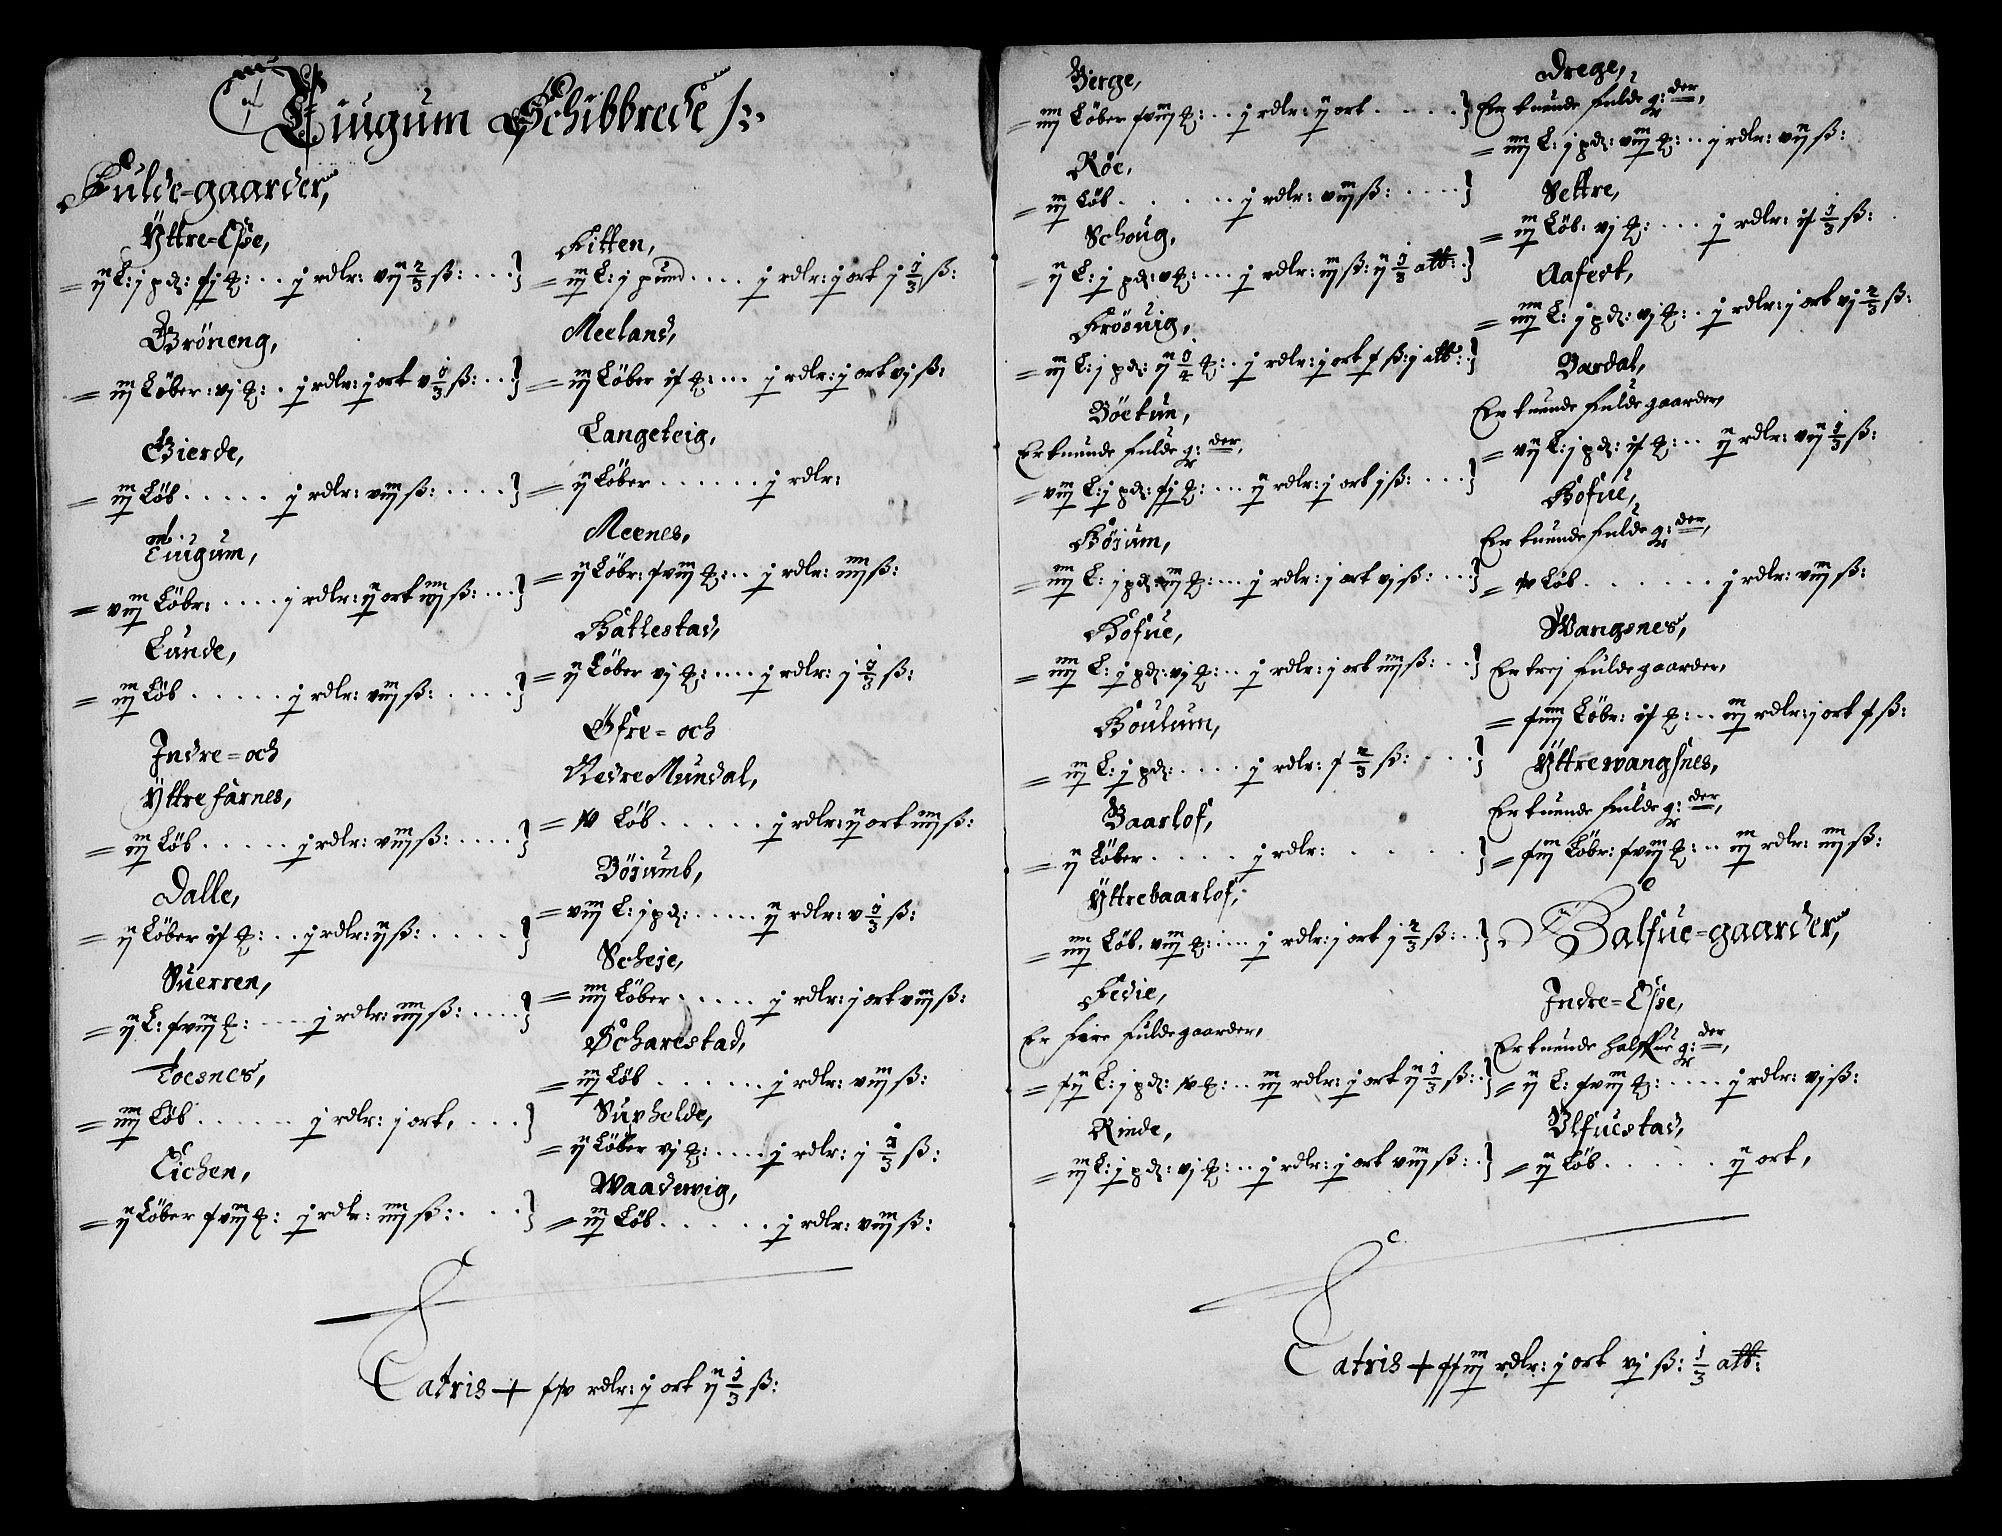 Tiugum Schibbrede /:
Fulde-gaarder,
Yttre-Esse,
ij L: j pd: xj ℔: .. j rdlr: vij 2/3 ß:
Gröneng,
iij Löber: vj ℔: . j rdlr: j ort v 1/3 ß:
Gierde,
iij Löb ..... j rdlr: viij ß:
Tiugum,
viij Löbr: .... j rdlr: ij ort iiij ß:
Lunde,
iij Löb ..... j rdlr: viij ß:
Indre- och
Yttre farnes,
iij Löb ..... j rdlr: viij ß:
Dalle,
ij Löber ix ℔: .. j rdlr: ij ß:
Suerren,
ij L: xviij ℔: .... j rdlr: iiij ß:
Toesnes,
iiij Löb ...... j rdlr: j ort,
Eichen,
ij Löber xviij ℔: j rdlr: iiij ß:
Fitten,
iij L: j pund .... j rdlr: j ort j 1/3 ß:
Meeland,
iij Löber ix ℔: ... j rdlr: j ort vj ß:
Langeteig,
ij Löber ...... j rdlr:
Meenes,
ij Löbr: xviij ℔: .. j rdlr: iiij ß:
Battestad,
ij Löber vj ℔: .... j rdlr: j 1/3 ß:
Öfre- och
Nedre Mundal,
xv Löb ..... j rdlr: ij ort iiij ß:
Böjumb,
viij L: j pd: ..... ij rdlr: v 1/3 ß:
Scheje,
iiij Löber ..... j rdlr: j ort viij ß:
Scharestad,
iij Löb ...... j rdlr: viij ß:
Suphelde,
ij Löber vj ℔: .... j rdlr: j 1/3 ß:
Waadewig,
iij Löb ..... j rdlr: viij ß:
Latris + xxv rdlr: j ort ij 1/3 ß:
Berge,
iiij Löber xviij ℔: .. j rdlr: ij ort
Röe,
iij Löb ..... j rdlr: viij ß:
Schoug,
ij L: j pd: v ℔: ... j rdlr: iij ß: ij 1/3 alb:
Fröövig,
iij L: j pd: ij 1/2 ℔: . j rdlr: j ort x ß: j alb:
Böetun,
Er tuende fulde g:der,
viij L: j pd: xj ℔: ... ij rdlr: j ort j ß:
Böjum,
iiij L: j pd: iij ℔: ... j rdlr: j ort vj ß:
Hofue,
iiij L: j pd: vj ℔: .. j rdlr: j ort iiij ß:
Houlum,
iij L: j pd: .... j rdlr: x 2/3 ß:
Baarlof,
ij Löber .... j rdlr:
Yttrebaarlof,
iiij Löb. viij ℔: .... j rdlr: j ort j 2/3 ß:
Fedie,
Er fire fulde gaarder,
xij L: j pd: xv ℔: .. iij rdlr: j ort ij 1/3 ß:
Rinde,
iij L: j pd: vj ℔: .. j rdlr: j ort viij ß:
Drege,
Er tuende fulde g:der,
iiij L: j pd: viij ℔: .. j rdlr: vij ß:
Settre,
iij Löb. vj ℔: ... j rdlr: ix 1/3 ß:
Aafest,
iiij L: j pd: vj ℔: . j rdlr: j ort vj 2/3 ß:
Bardal,
Er tuende fulde gaarder,
vij L: j pd: ix ℔: .. ij rdlr: vij 1/3 ß:
Hofue,
Er tuende fulde g:der,
xv Löb ....... j rdlr: viij ß:
Wangsnes,
Er trej fulde gaarder,
xiiij Löbr: ix ℔: .. iij rdlr: j ort x ß:
Yttrewangsnes,
Er tuende fulde g:der,
xiij Löbr: xviij ℔: .. iij rdlr: iiij ß:
Halfue-gaarder,
Indre-Esse,
Er tuende halffue g:der,
ij L: xviij ℔: .... j rdlr: vj ß:
Ulfuestad,
ij Löb ..... ij ort,
Latris + xxiij rdlr: j ort vj ß: 1/3 alb: